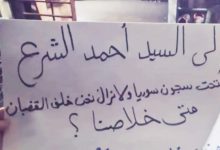 لى السيد أحمد الشرع
فتحت سجون سوريا ولا نزال نحن خلف القضبان
متى خلاصنا ؟